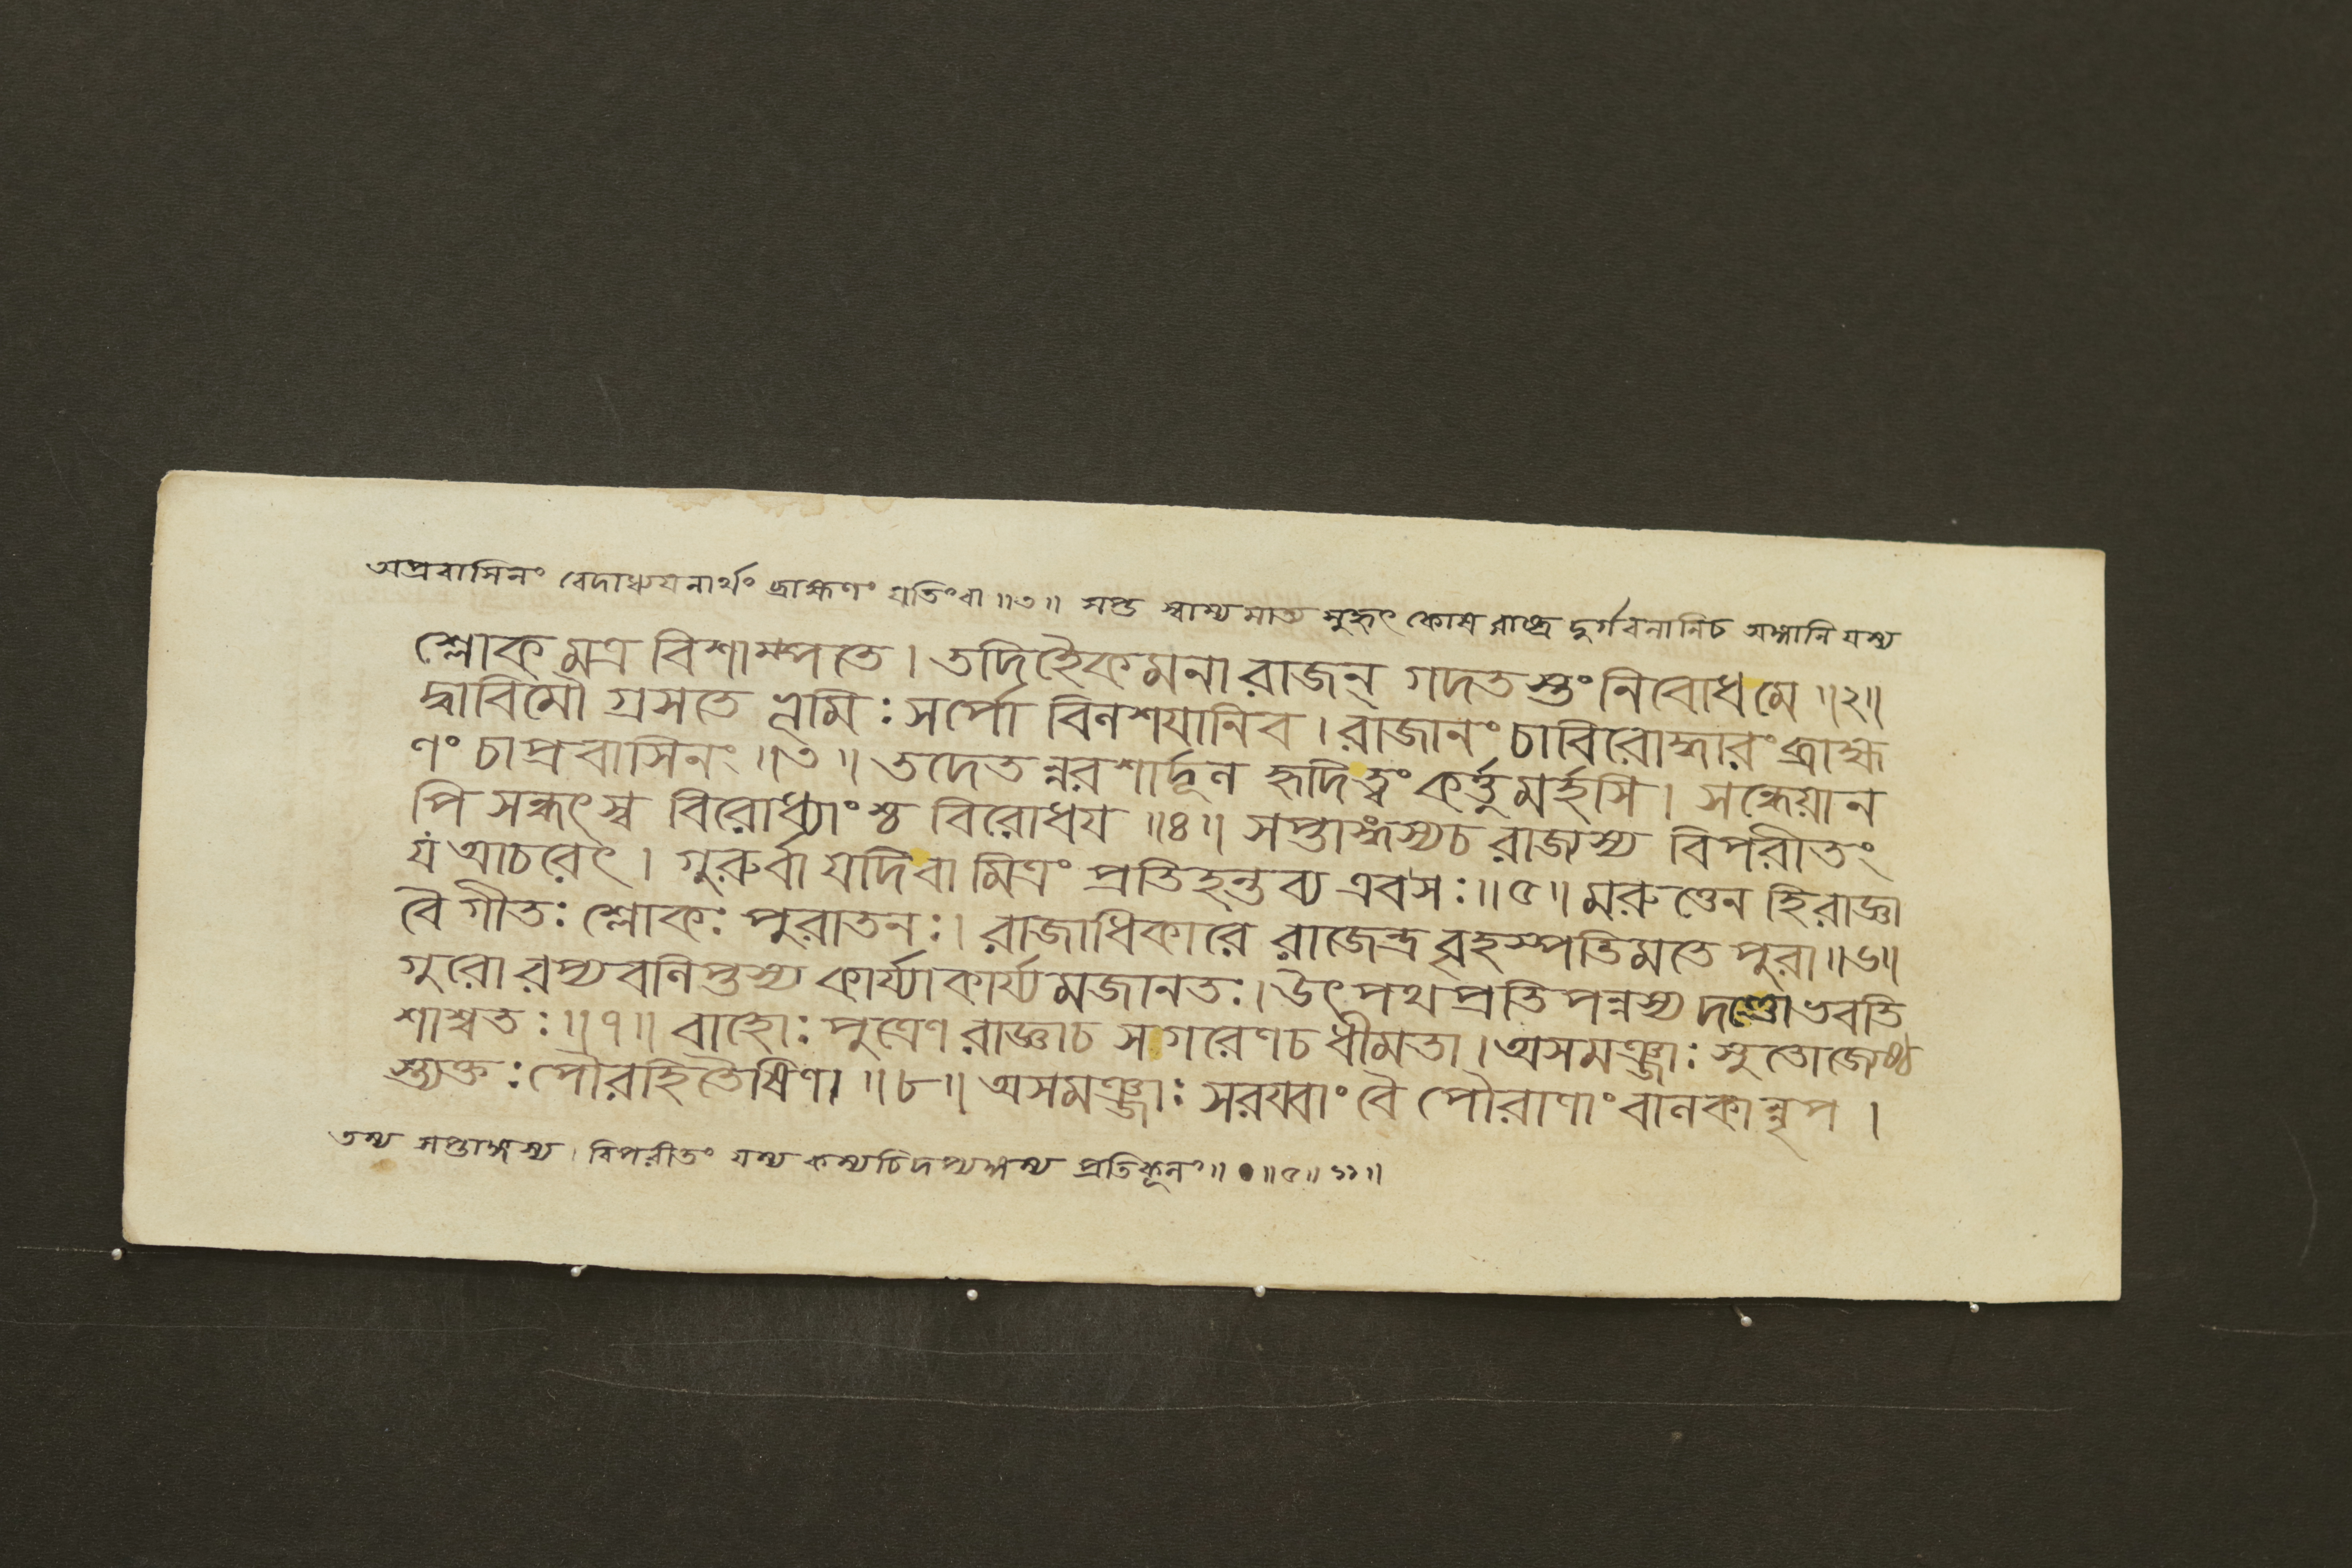 অপ্রবাসিনং বেদাধ্যয়নার্থং ব্রাহ্মণং যতিংবা ॥৩॥ সপ্ত স্বাম্যমাত্য সুহৃৎ কোশ রাষ্ট্র দুর্গবলানিচ অঙ্গানি যস্য
শ্লোকমত্র বিশাম্পতে । তদিহৈকমনা রাজন্ গদতস্তং নিবোধমে ॥২॥
দ্বাবিমৌ গ্রসতে ভূমিঃ সর্পো বিলশযানিব । রাজানং চাবিরোদ্ধারং ব্রাহ্ম
ণং চাপ্রবাসিনং ॥৩॥ তদেতন্নরশার্দূল হৃদিত্বং কর্ত্তুমর্হসি । সন্ধেয়ান
পি সন্ধৎস্ব বিরোধ্যাংশ্চ বিরোধয ॥৪॥ সপ্তাঙ্গস্যচ রাজ্যস্য বিপরীতং
য আচরেৎ । গুরুর্বা যদিবা মিত্রং প্রতিহন্তব্য এবসঃ ॥৫॥ মরুত্তেন হিরাজ্ঞা
বৈ গীতঃ শ্লোকঃ পুরাতনঃ । রাজাধিকারে রাজেন্দ্র বৃহস্পতিমতে পুরা ॥৬॥
গুরোরপ্যবলিপ্তস্য কার্য্যাকার্য্যমজানতঃ । উৎপথপ্রতিপন্নস্য দণ্ডোভবতি
শাশ্বতঃ ॥৭॥ বাহোঃ পুত্রেণ রাজ্ঞাচ সগরেণচ ধীমতা । অসমঞ্জাঃ সুতোজ্যেষ্ঠ
স্ত্যক্তঃ পৌরহিতৈষিণা ॥৮॥ অসমঞ্জাঃ সরয্বাং বৈ পৌরাণাং বালকান্নৃপ ।
তস্য সপ্তাঙ্গস্য । বিপরীতং যস্য কস্যচিদপ্যঙ্গস্য প্রতিকূলং ॥ ॥৫॥ ১১ ॥